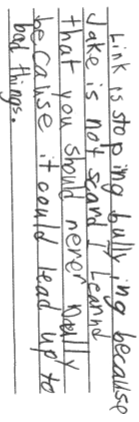 Link is stoping bullying because
Jake is not scard I Leannd
that you should never bully
because it could lead up to
bad things.